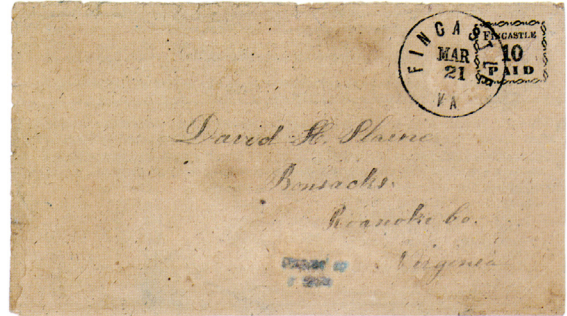 FINCASTLE
MAR
21
VA
FINCASTLE
10
PAID
David H. Plaine
Bonsacks.
Roanoke Co.
Virginia